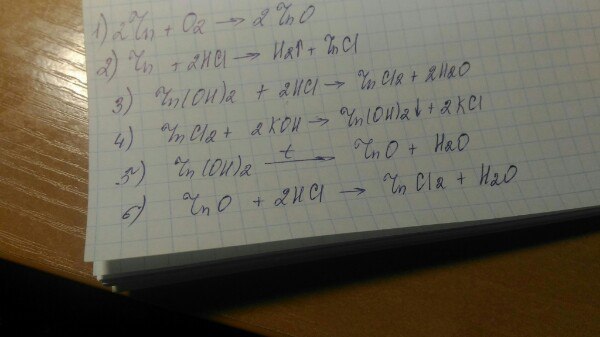 1) 2Zn + O2 → 2ZnO
2) Zn + 2HCl → H2↑ + ZnCl
3) Zn(OH)2 + 2HCl → ZnCl2 + 2H2O
4) ZnCl2 + 2KOH → Zn(OH)2↓ + 2KCl
5) Zn(OH)2 t→ ZnO + H2O
6) ZnO + 2HCl → ZnCl2 + H2O